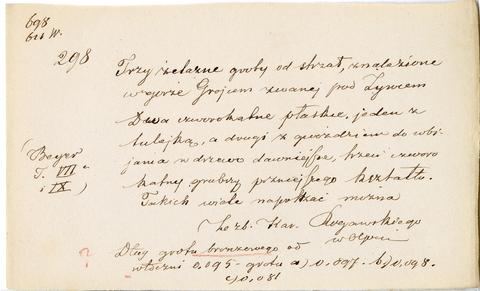 698
bis W.
298
Trzy żelazne groty od strzał, znalezione
w górze Grojcem zwanej pod Żywcem
Dwa czworokątne płaskie, jeden z
tulejką, a drugi z gwoździem do wbi-
jania w drzewo dawniejsze, trzeci czworo
kątny grubszy późniejszego kształtu.
Takich wiele napotkać można
(Beyer
T. VII
i IX)
Ze zb. Kar. Rogawskiego
w Olpin
? Dług grotu bronzowego od
włóczni 0,095 - grotu a) 0,097. b) 0,098.
c) 0,081